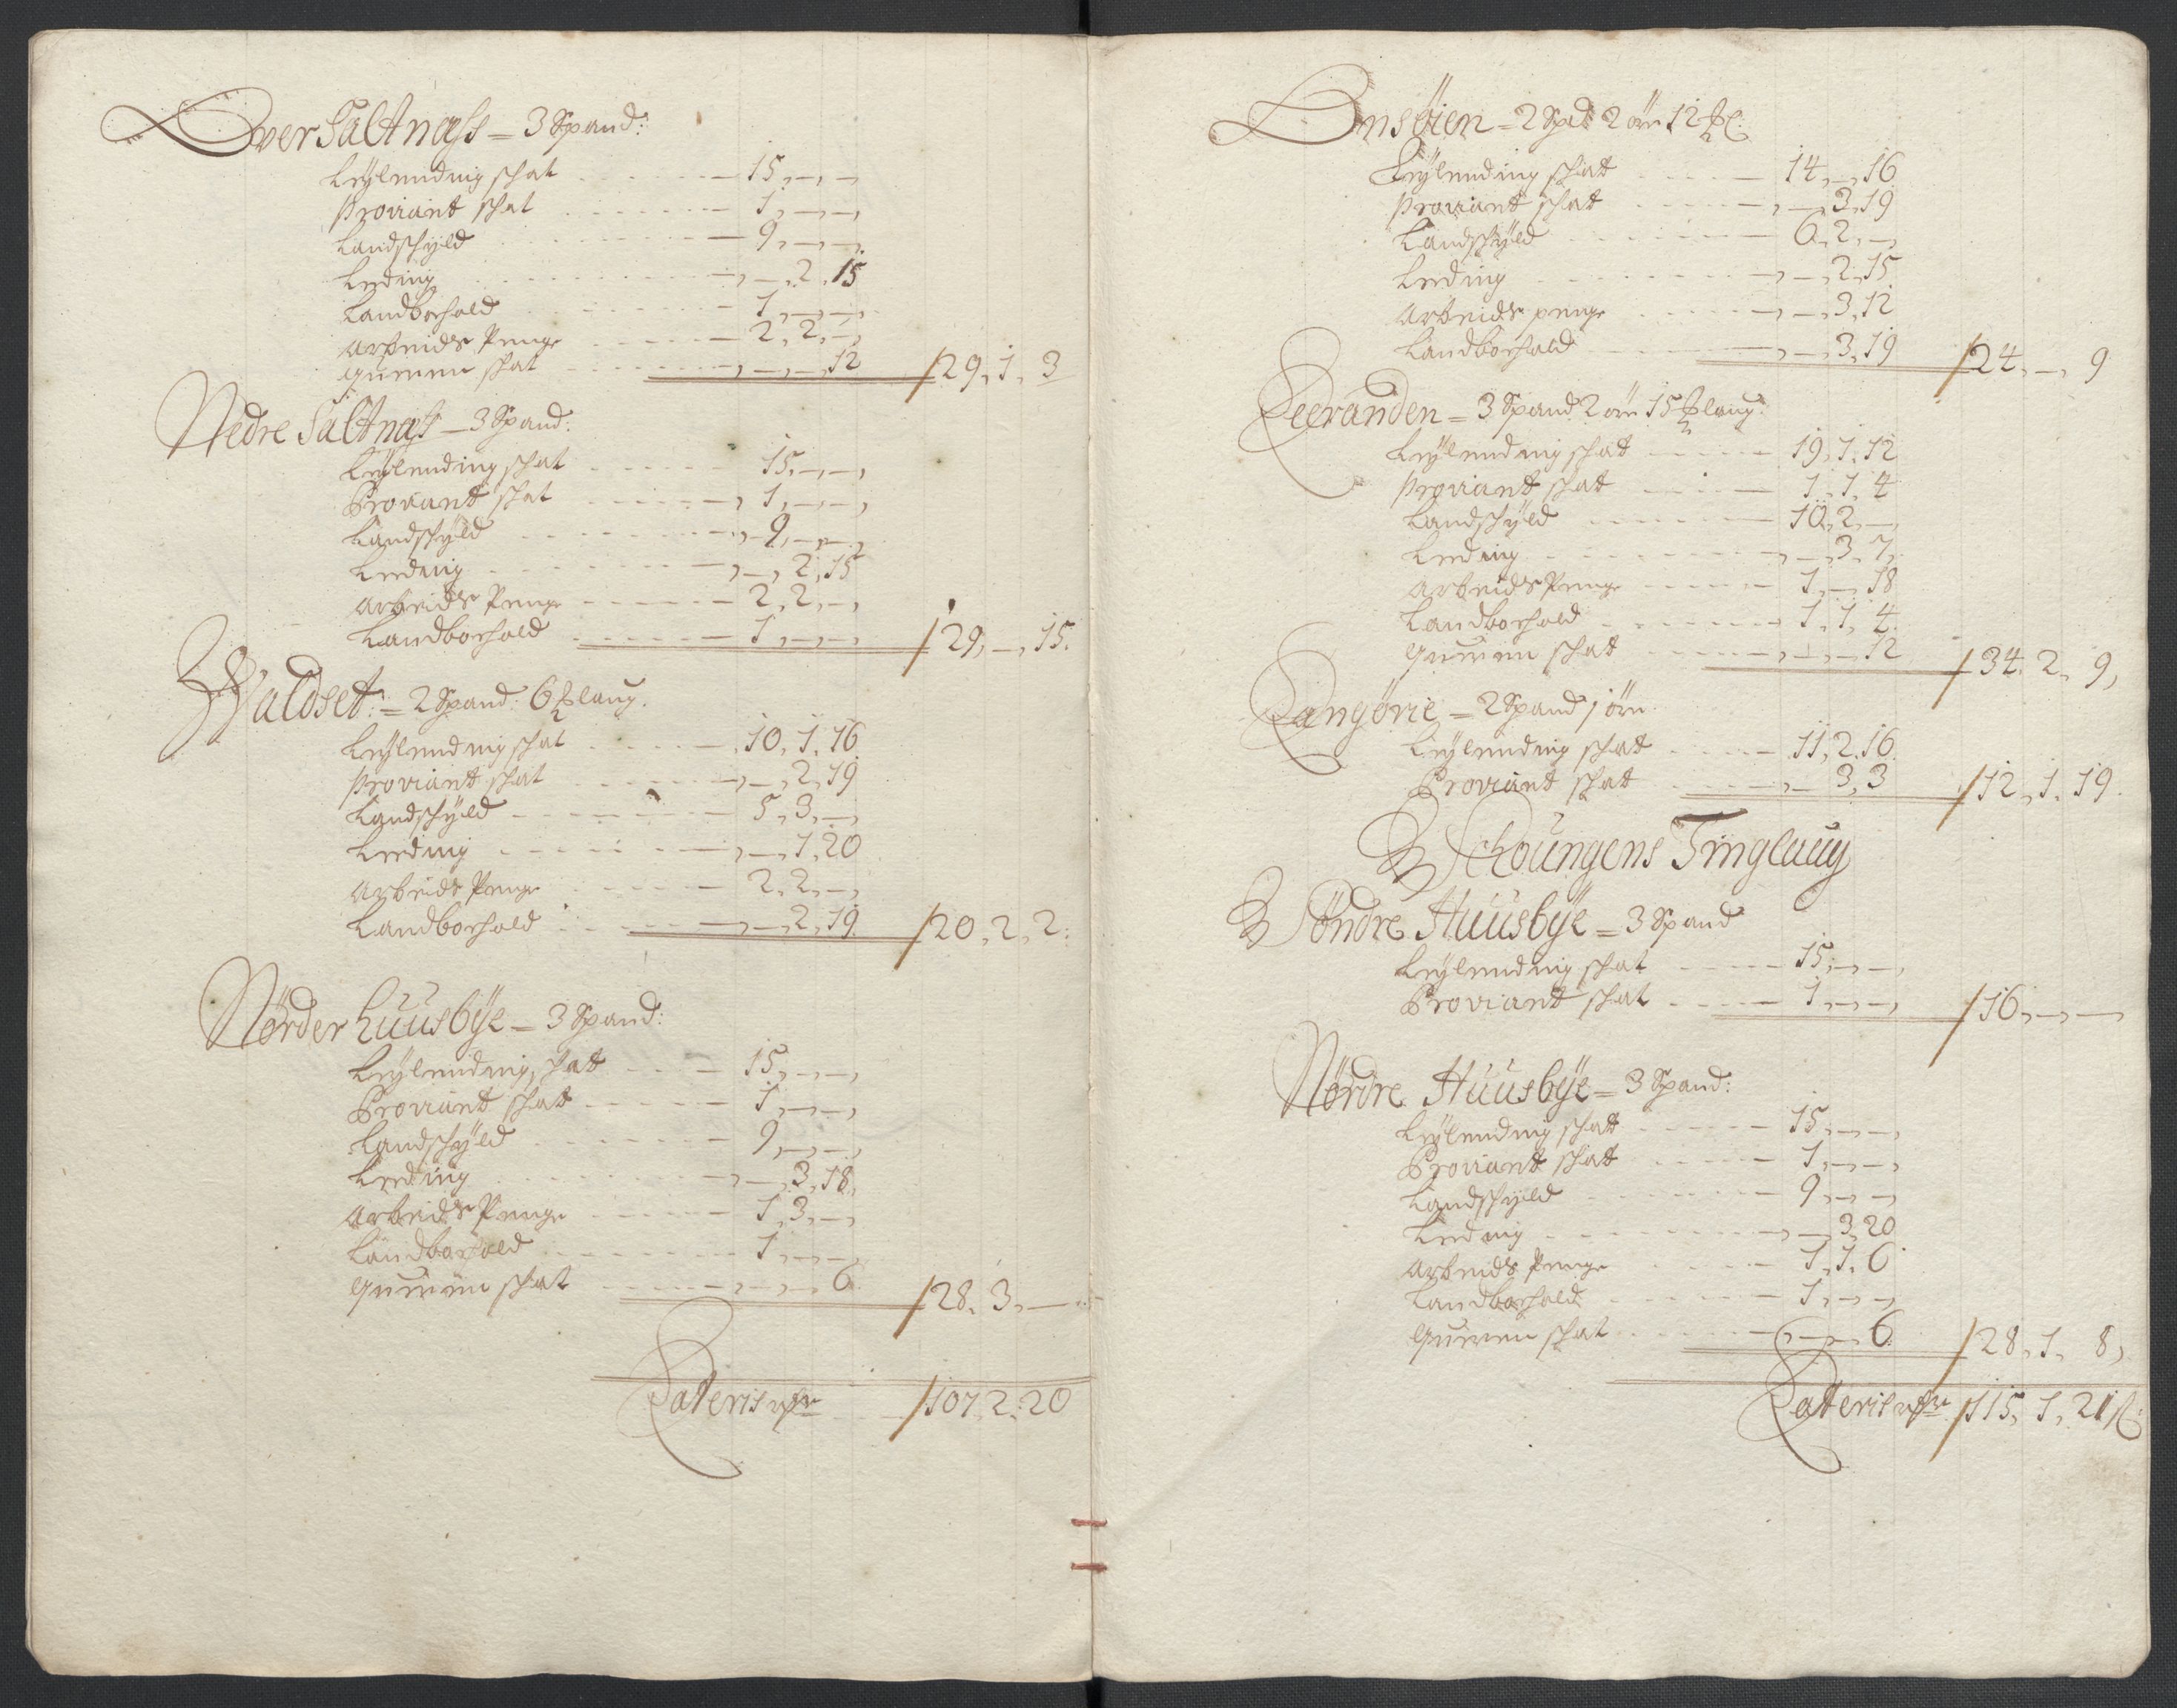 Øver Saltnæss – 3 Spand:
Leÿlending schat - - - - - - 15,–,–
Proviant schat - - - - - - 1,–,–,
Landschÿld - - - - - - 9,–,–,
Leeding - - - - - - –,–,2,15
Landboehold - - - - - - 1,–,–,
Arbeids Penge - - - - - - 2,2,–,
Qvernn schat - - - - - - –,–,–,12 / 29,1,3
Nedre Saltnæss – 3 Spand:
Leÿlending schat - - - - - - 15,–,–,
Proviant schat - - - - - - 1,–,–,
Landschÿld - - - - - - 9,–,–,
Leeding - - - - - - –,–,2,15
Arbeids Penge - - - - - - 2,2,–,
Landboehold - - - - - - 1,–,–, / 29,–,15.
Waldset: = 2 Spand: 6 ℔ laug.
Leÿlending schat - - - - - - 10,1,16
Proviant schat - - - - - - –,–,2,19
Landschÿld - - - - - - 5,3,–,
Leeding - - - - - - –,–,1,20
Arbeids Penge - - - - - - 2,2,–,
Landboehold - - - - - - –,–,2,19 / 20,2,2:
Nörder huusbÿe – 3 Spand:
Leÿlending schat - - - 15,–,–,
Proviant schat - - - - - 1,–,–,
Landschÿld - - - - - - 9,–,–,
Leeding - - - - - - –,–,3,18,
Arbeids Penge - - - - - 1,3,–,
Landboehold - - - - - - 1,–,–,
Qvernn schat - - - - - - –,–,–,6 / 28,3,–
Lateris rdr / 107,2,20
Onsöien – 2 Spd 2 öre 12 ℔ l:
Leÿlending schat - - - - - 14,–,16
Proviant schat - - - - - –,–,3,19
Landschÿld - - - - - - 6,2,–,
Leeding - - - - - - –,–,2,15
Arbeids penge - - - - - –,–,3,12
Landboehold - - - - - - –,–,3,19 / 24,–,9
Leeranden – 3 Spand 2 öre 15 ℔ laug:
Leÿlending schat - - - - - 19,1,12
Proviant schat - - - - - 1,1,4
Landschÿld - - - - - - 10,2,–,
Leeding - - - - - - –,–,3,7,
Arbeids Penge - - - - - 1,–,18
Landboehold - - - - - - 1,1,4
Qvernn schat - - - - - –,–,–,12 / 34,2,9,
Langörie – 2 Spand 1 öre
Leÿlending schat - - - - - 11,2,16
Proviant schat - - - - - –,–,3,3 / 12,1,19.
Schoungens Tinglaug
Söndre Huusbÿe – 3 Spand
Leÿlending schat - - - - - 15,–,–,
Proviant schat - - - - - 1,–,–, / 16,–,–
Nördre Huusbÿe – 3 Spand:
Leÿlending schat - - - - - 15,–,–,
Proviant schat - - - - - 1,–,–,
Landschÿld - - - - - - 9,–,–
Leeding - - - - - - –,–,3,20
Arbeids Penge - - - - - 1,1,6
Landboehold - - - - - - 1,–,–,
Qvernn schat - - - - - - –,–,–,6 / 28,1,8,
Lateris rdr / 115,1,21 ß: